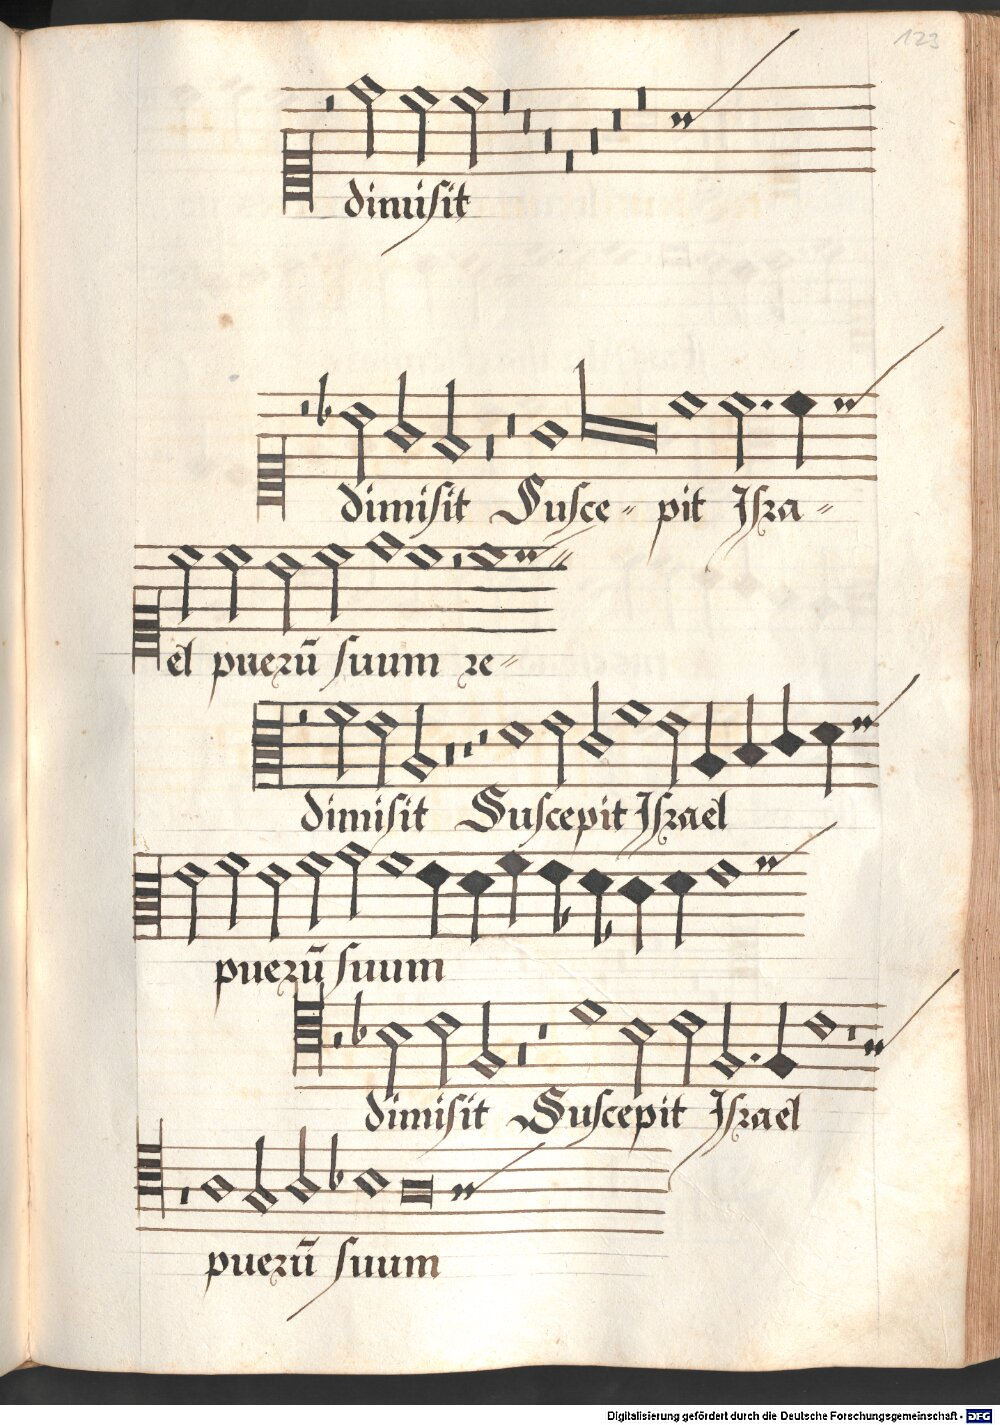 123
dimisit
dimisit Susce〃 pit Isra〃
el puerū suum re〃
dimisit Suscepit Israel
puerū suum
dimisit Suscepit Israel
puerū suum
Digitalisierung gefördert durch die Deutsche Forschungsgemeinschaft - DFG